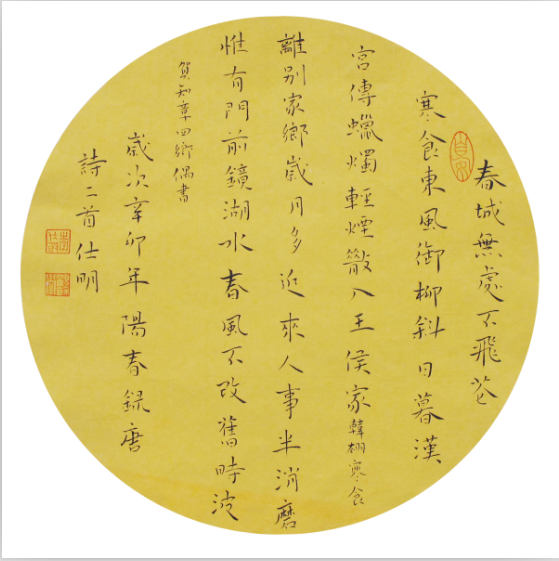 春城無處不飛花
寒食東風御柳斜日暮漢
宮傳蠟燭輕煙散入王侯家韓翃寒食
離別家鄉歲月多近來人事半消磨
惟有門前鏡湖水春風不改舊時波
賀知章回鄉偶書
歲次辛卯年陽春錄唐
詩二首仕明